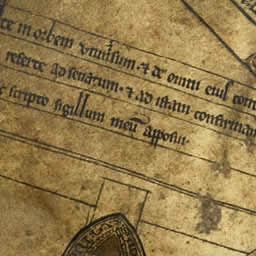 te in orbem vniu'sum · & de omni eius
referte ad senarum · & ad istam confirman
scripto sigillum meū apposui ·